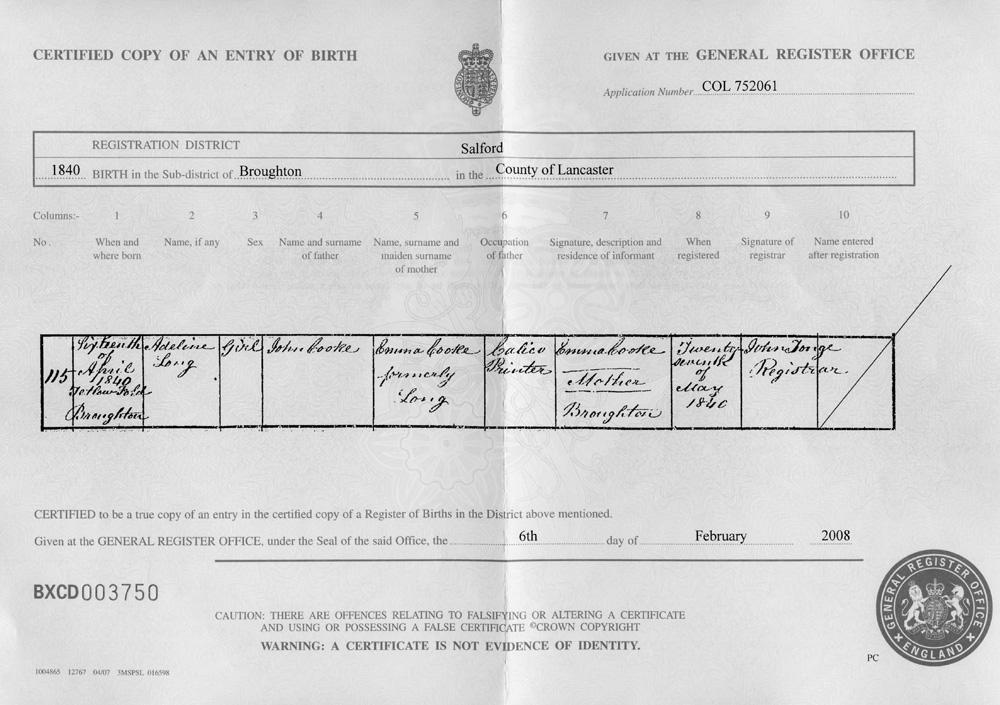 CERTIFIED COPY OF AN ENTRY OF BIRTH
GIVEN AT THE GENERAL REGISTER OFFICE
Application Number COL 752061
REGISTRATION DISTRICT Salford
1840 BIRTH in the Sub-district of Broughton in the County of Lancaster
Columns:- 1 2 3 4 5 6 7 8 9 10
No. When and where born Name, if any Sex Name and surname of father Name, surname and maiden surname of mother Occupation of father Signature, description and residence of informant When registered Signature of registrar Name entered after registration
115
Sixteenth
of
April
1840
Broughton
Adeline
Long
Girl
John Cooke
Emma Cooke
formerly
Long
Calico
Printer
Emma Cooke
Mother
Broughton
Twenty
seventh
of
May
1840
John Tonge
Registrar.
CERTIFIED to be a true copy of an entry in the certified copy of a Register of Births in the District above mentioned.
Given at the GENERAL REGISTER OFFICE, under the Seal of the said Office, the 6th day of February 2008
BXCD003750
CAUTION: THERE ARE OFFENCES RELATING TO FALSIFYING OR ALTERING A CERTIFICATE
AND USING OR POSSESSING A FALSE CERTIFICATE ©CROWN COPYRIGHT
WARNING: A CERTIFICATE IS NOT EVIDENCE OF IDENTITY.
GENERAL REGISTER OFFICE
ENGLAND
PC
1004865 12767 04/07 3MSPSL 016598